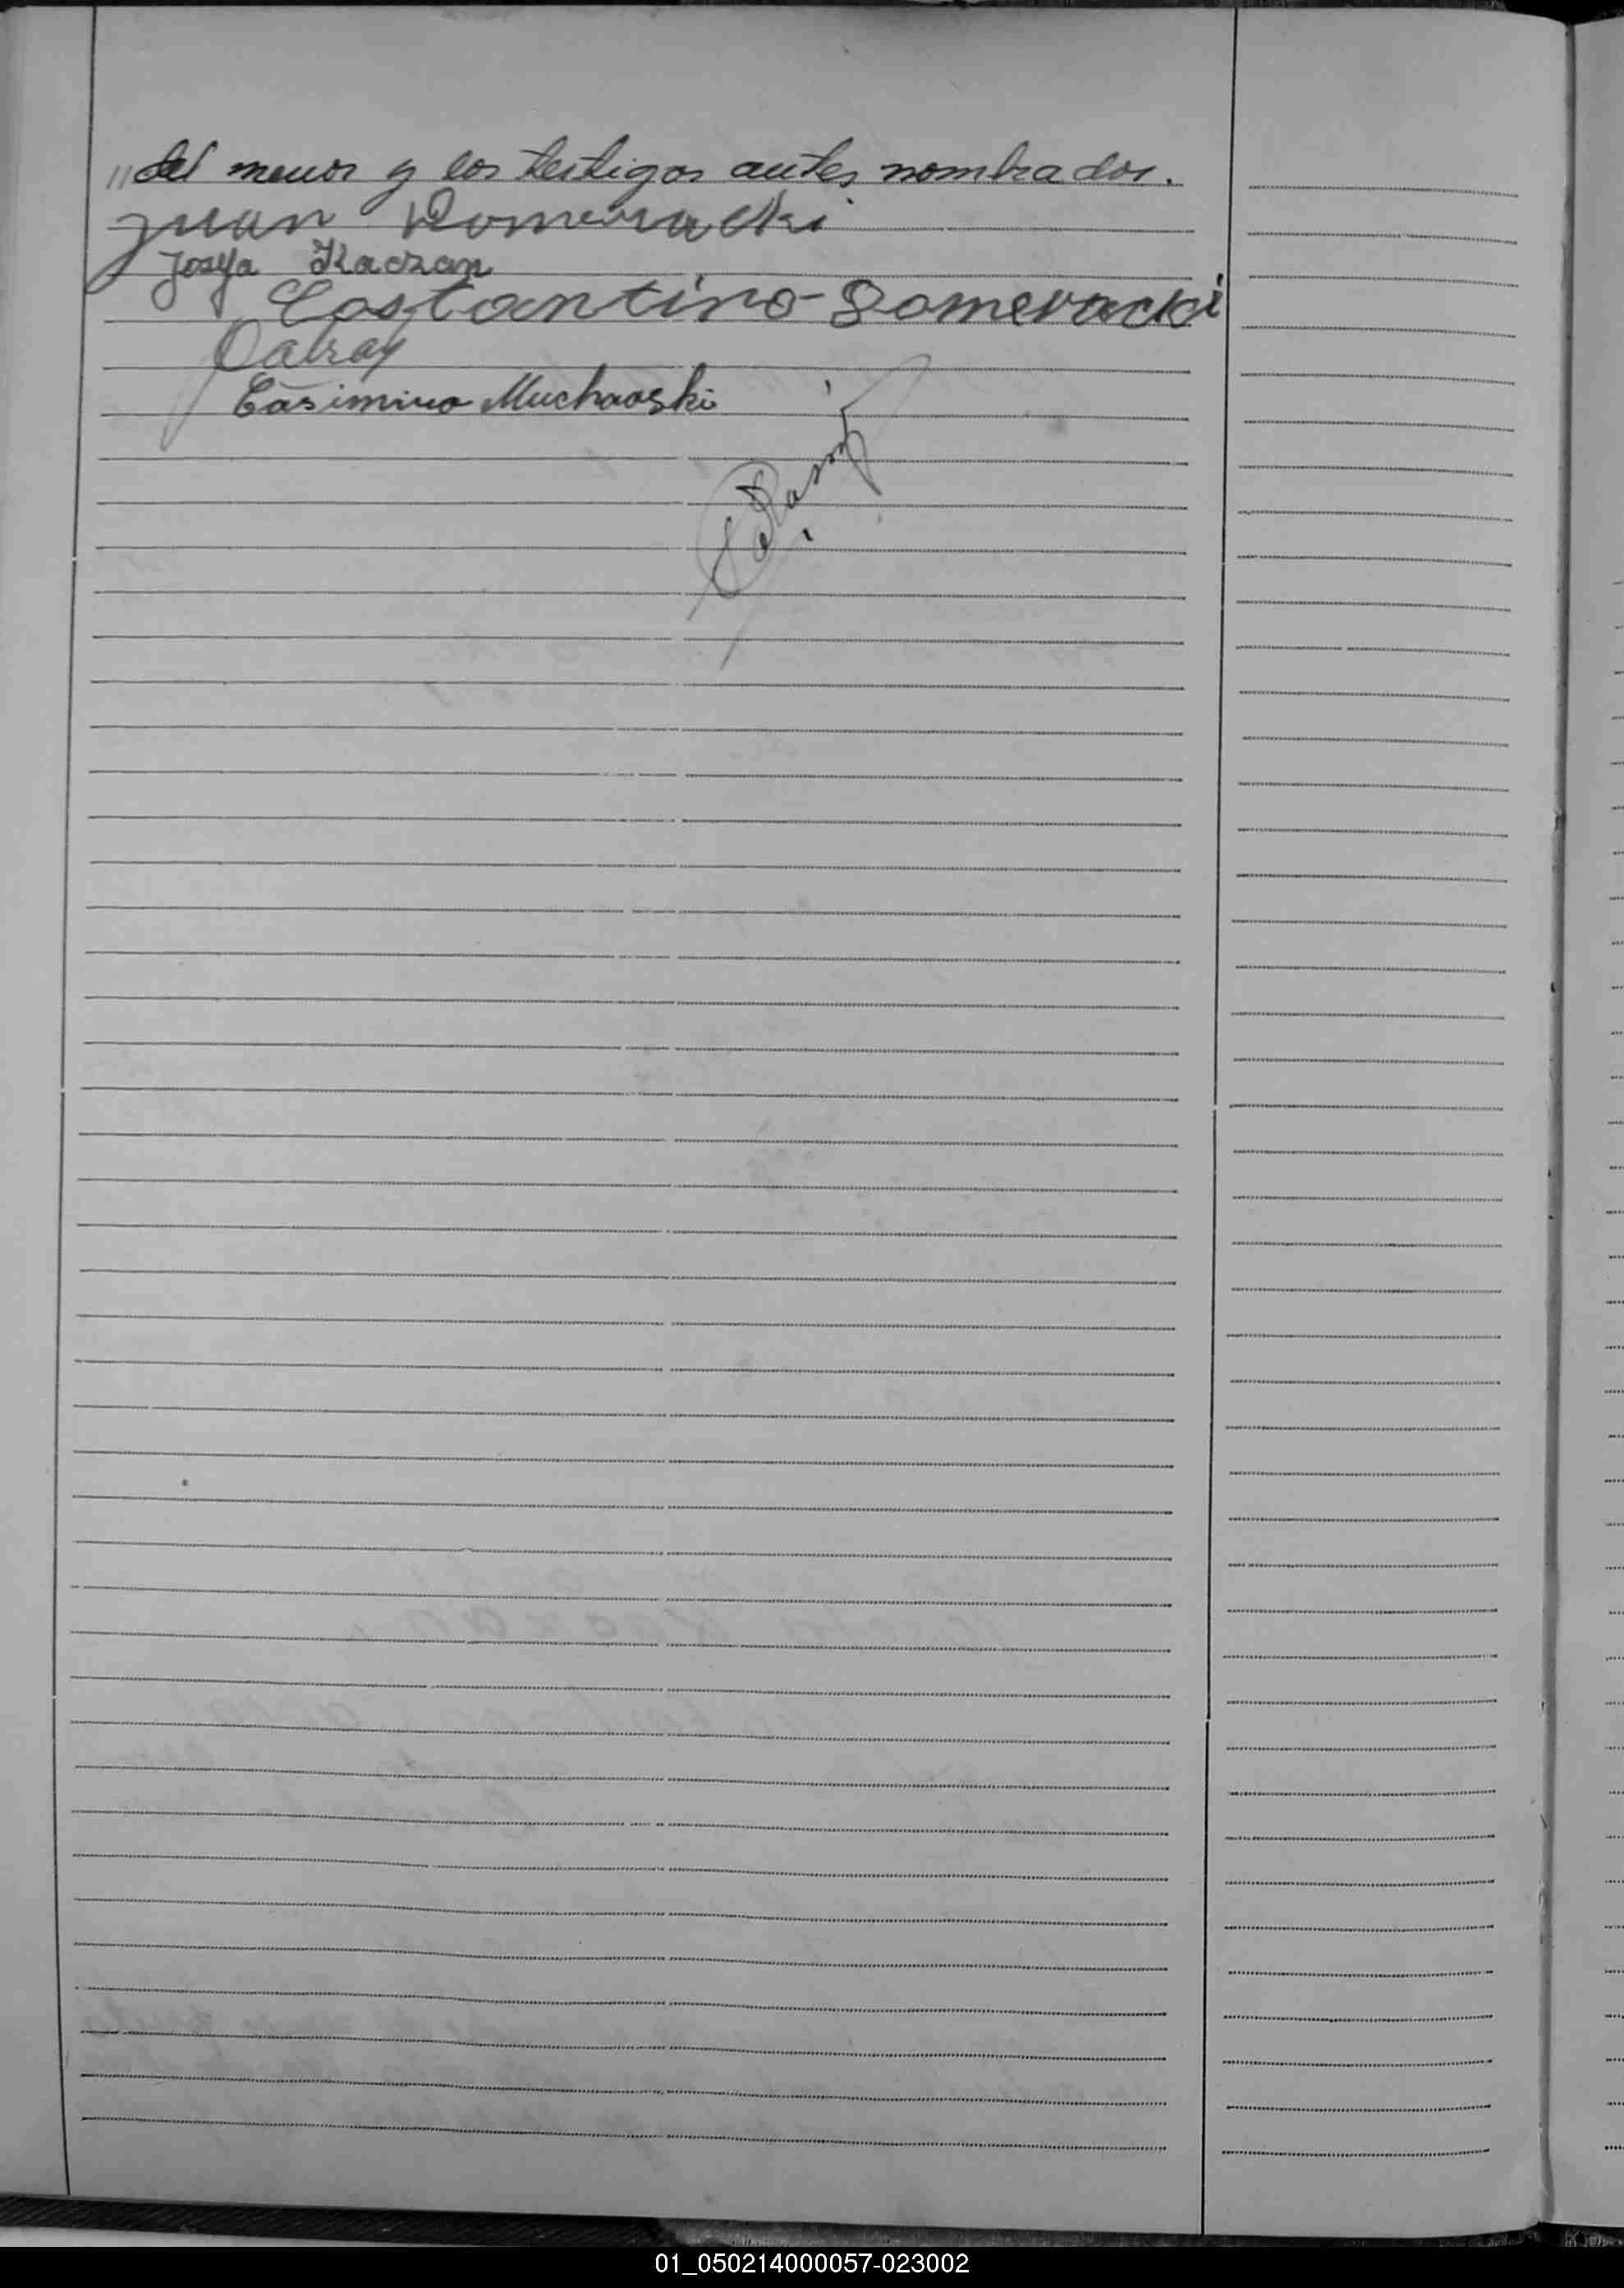 "del menor y los testigos antes nombrados.
Juan Domeracki
Josefa Kaczan
Costantino Domeracki
Casimiro Muchaoski
01_050214000057-023002